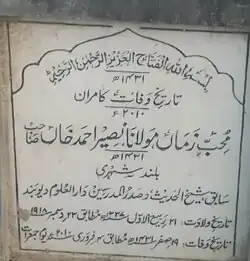 بسم اللہ الفتاح العزیز الرحمٰن الرحیم
۱۴۳۱ھ
تاریخ وفات کامران
۲۰۱۰ء
محب زماں مولانا نصیر احمد خاں صاحب
۱۴۳۱ھ
بلند شہری
سابق شیخ الحدیث و صدر المدرسین دارالعلوم دیوبند
تاریخ ولادت: ۲۱ ربیع الاول ۱۳۳۷ھ مطابق ۲۳ دسمبر ۱۹۱۸ء
تاریخ وفات: ۱۹ صفر ۱۴۳۱ھ مطابق ۴ فروری ۲۰۱۰ء یوم جمعرات